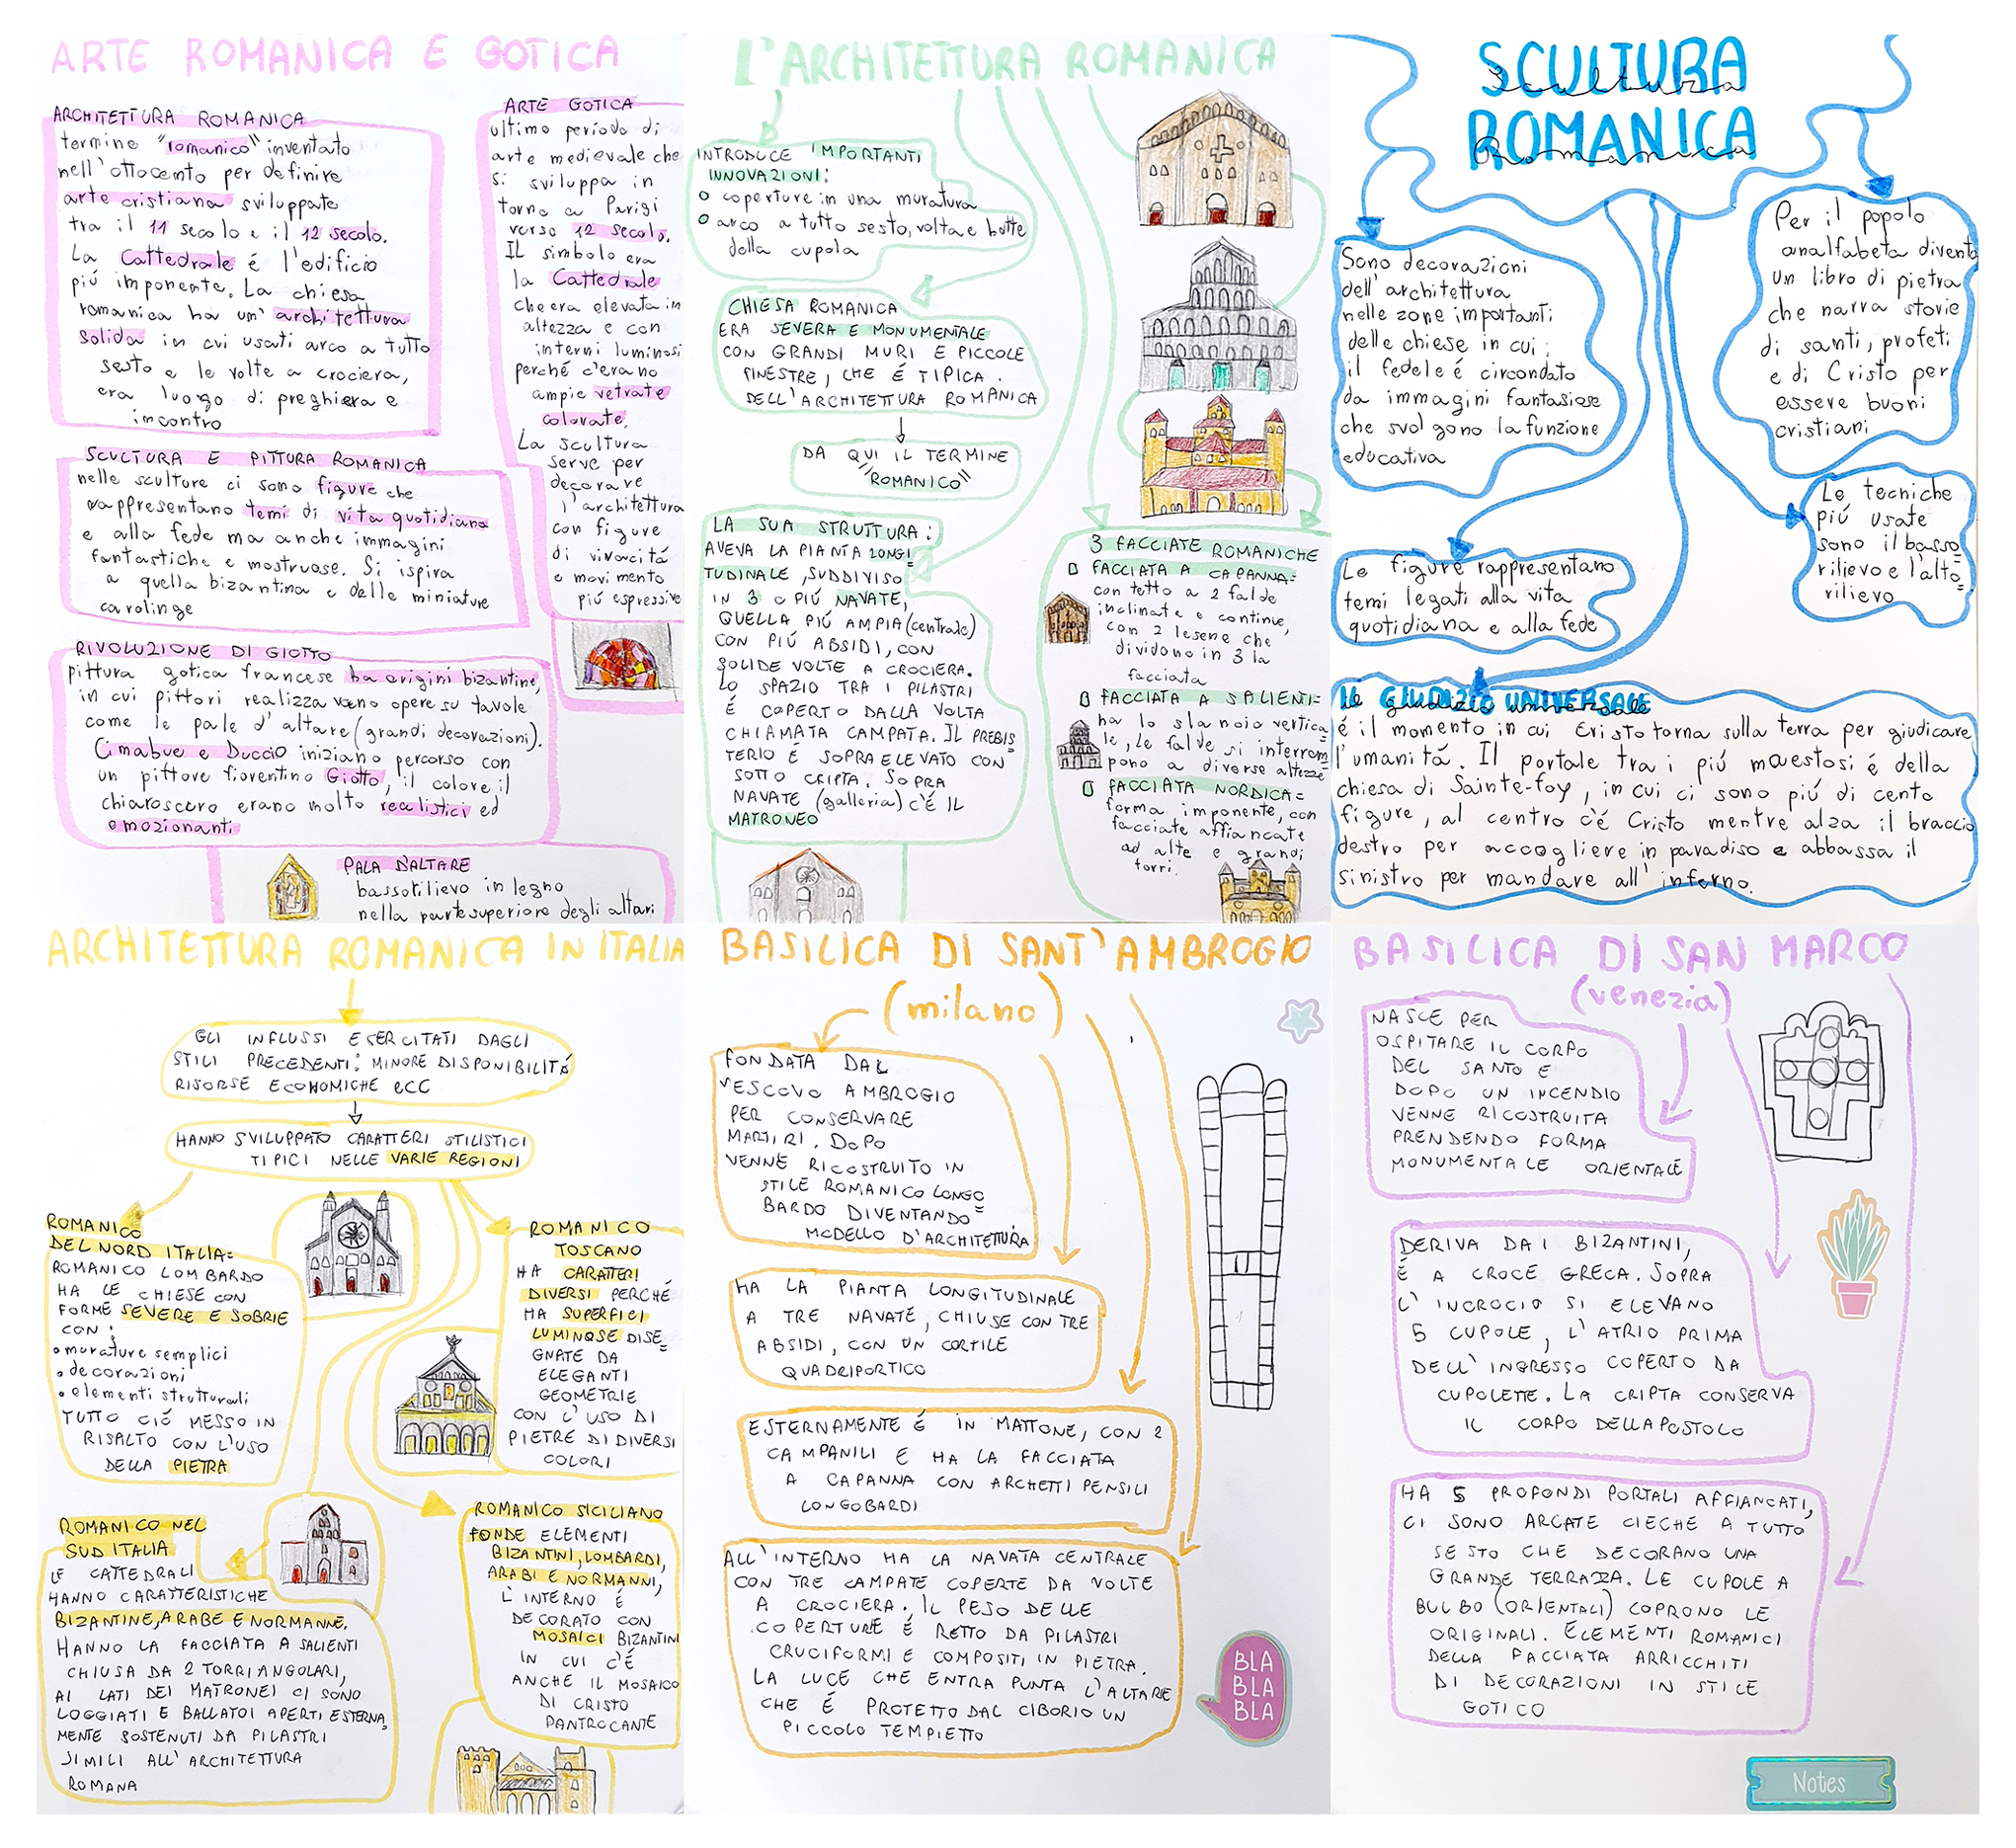 ARTE ROMANICA E GOTICA
ARCHITETTURA ROMANICA
termine "romanico" inventato
nell'ottocento per definire
arte cristiana sviluppate
tra il 11 secolo e il 12 secolo.
La Cattedrale é l'edificio
piú imponente. La chiesa
romanica ha un' architettura
solida in cui usati arco a tutto
sesto e le volte a crociera,
era luogo di preghiera e
incontro
SCULTURA E PITTURA ROMANICA
nelle sculture ci sono figure che
rappresentano temi di vita quotidiana
e alla fede ma anche immagini
fantastiche e mostruose. Si ispira
a quella bizantina e delle miniature
carolinge
RIVOLUZIONE DI GIOTTO
pittura gotica francese ha origini bizantine,
in cui pittori realizzavano opere su tavole
come le pale d'altare (grandi decorazioni).
Cimabue e Duccio iniziano percorso con
un pittore fiorentino Giotto, il colore il
chiaroscuro erano molto realistici ed
emozionanti
PALA D'ALTARE
bassorilievo in legno
nella parte superiore degli altari
ARTE GOTICA
ultimo periodo di
arte medievale che
si sviluppa in
torno a Parigi
verso 12 secolo.
IL simbolo era
la Cattedrale
che era elevata in
altezza e con
interni luminosi
perché c'erano
ampie vetrate
colorate.
La scultura
serve per
decorare
l'architettura
con figure
di vivacitá
e movimento
piú espressive
L'ARCHITETTURA ROMANICA
INTRODUCE IMPORTANTI
INNOVAZIONI:
coperture in una muratura
arco a tutto sesto, volta e botte
della cupola
CHIESA ROMANICA
ERA SEVERA E MONUMENTALE
CON GRANDI MURI E PICCOLE
FINESTRE, CHE É TIPICA
DELL'ARCHITETTURA ROMANICA
DA QUI IL TERMINE
"ROMANICO"
LA SUA STRUTTURA:
AVEVA LA PIANTA LONGI
TUDINALE, SUDDIVISO
IN 3 O PIÚ NAVATE,
QUELLA PIÚ AMPIA (centrale)
CON PIÚ ABSIDI, CON
SOLIDE VOLTE A CROCIERA.
LO SPAZIO TRA I PILASTRI
É COPERTO DALLA VOLTA
CHIAMATA CAMPATA. IL PREBIS=
TERIO É SOPRAELEVATO CON
SOTTO CRIPTA. SOPRA
NAVATE (galleria) C'É IL
MATRONEO
3 FACCIATE ROMANICHE
FACCIATA A CAPANNA=
con tetto a 2 falde
inclinate e continue,
con 2 lesene che
dividono in 3 la
facciata
FACCIATA A SALIENTI=
ha lo slancio vertica=
le, le falde si interrom=
pono a diverse altezze
FACCIATA NORDICA=
forma imponente, con
facciate affiancate
ad alte e grandi
torri.
SCULTURA
Scultura
ROMANICA
Romanica
Sono decorazioni
dell'architettura
nelle zone importanti
delle chiese in cui:
il fedele é circondato
da immagini fantasiose
che svolgono la funzione
educativa
Per il popolo
analfabeta diventa
un libro di pietra
che narra storie
di santi, profeti
e di Cristo per
essere buoni
cristiani
Le tecniche
piú usate
sono il basso=
rilievo e l'alto=
rilievo
Le figure rappresentano
temi legati alla vita
quotidiana e alla fede
IL GIUDIZIO UNIVERSALE
é il momento in cui Cristo torna sulla terra per giudicare
l'umanitá. Il portale tra i piú maestosi é della
chiesa di Sainte-foy, in cui ci sono piú di cento
figure, al centro c'é Cristo mentre alza il braccio
destro per accogliere in paradiso e abbassa il
sinistro per mandare all'inferno.
ARCHITETTURA ROMANICA IN ITALIA
GLI INFLUSSI ESERCITATI DAGLI
STILI PRECEDENTI: MINORE DISPONIBILITÁ
RISORSE ECONOMICHE ECC
HANNO SVILUPPATO CARATTERI STILISTICI
TIPICI NELLE VARIE REGIONI
ROMANICO
DEL NORD ITALIA=
ROMANICO LOMBARDO
HA LE CHIESE CON
FORME SEVERE E SOBRIE
CON:
murature semplici
decorazioni
elementi strutturali
TUTTO CIÓ MESSO IN
RISALTO CON L'USO
DELLA PIETRA
ROMANICO
TOSCANO
HA CARATTERI
DIVERSI PERCHÉ
HA SUPERFICI
LUMINOSE DISE=
GNATE DA
ELEGANTI
GEOMETRIE
CON L'USO DI
PIETRE DI DIVERSI
COLORI
ROMANICO NEL
SUD ITALIA
LE CATTEDRALI
HANNO CARATTERISTICHE
BIZANTINE, ARABE E NORMANNE.
HANNO LA FACCIATA A SALIENTI
CHIUSA DA 2 TORRI ANGOLARI,
AI LATI DEI MATRONEI CI SONO
LOGGIATI E BALLATOI APERTI ESTERNA=
MENTE SOSTENUTI DA PILASTRI
SIMILI ALL'ARCHITETTURA
ROMANA
ROMANICO SICILIANO
FONDE ELEMENTI
BIZANTINI, LOMBARDI,
ARABI E NORMANNI,
L'INTERNO É
DECORATO CON
MOSAICI BIZANTINI
IN CUI C'É
ANCHE IL MOSAICO
DI CRISTO
PANTROCANTE
BASILICA DI SANT'AMBROGIO
(milano)
FONDATA DAL
VESCOVO AMBROGIO
PER CONSERVARE
MARTIRI. DOPO
VENNE RICOSTRUITO IN
STILE ROMANICO LONGO
BARDO DIVENTANDO=
MODELLO D'ARCHITETTURA
HA LA PIANTA LONGITUDINALE
A TRE NAVATE, CHIUSE CON TRE
ABSIDI, CON UN CORTILE
QUADRIPORTICO
ESTERNAMENTE É IN MATTONE, CON 2
CAMPANILI E HA LA FACCIATA
A CAPANNA CON ARCHETTI PENSILI
LONGOBARDI
ALL'INTERNO HA LA NAVATA CENTRALE
CON TRE CAMPATE COPERTE DA VOLTE
A CROCIERA. IL PESO DELLE
COPERTURE É RETTO DA PILASTRI
CRUCIFORMI E COMPOSITI IN PIETRA.
LA LUCE CHE ENTRA PUNTA L'ALTARE
CHE É PROTETTO DAL CIBORIO UN
PICCOLO TEMPIETTO
BLA
BLA
BLA
BASILICA DI SAN MARCO
(venezia)
NASCE PER
OSPITARE IL CORPO
DEL SANTO E
DOPO UN INCENDIO
VENNE RICOSTRUITA
PRENDENDO FORMA
MONUMENTALE ORIENTALE
DERIVA DAI BIZANTINI,
É A CROCE GRECA. SOPRA
L'INCROCIO SI ELEVANO
5 CUPOLE, L'ATRIO PRIMA
DELL'INGRESSO COPERTO DA
CUPOLETTE. LA CRIPTA CONSERVA
IL CORPO DELL'APOSTOLO
HA 5 PROFONDI PORTALI AFFIANCATI,
CI SONO ARCATE CIECHE A TUTTO
SESTO CHE DECORANO UNA
GRANDE TERRAZZA. LE CUPOLE A
BULBO (ORIENTALI) COPRONO LE
ORIGINALI. ELEMENTI ROMANICI
DELLA FACCIATA ARRICCHITI
DI DECORAZIONI IN STILE
GOTICO
Notes